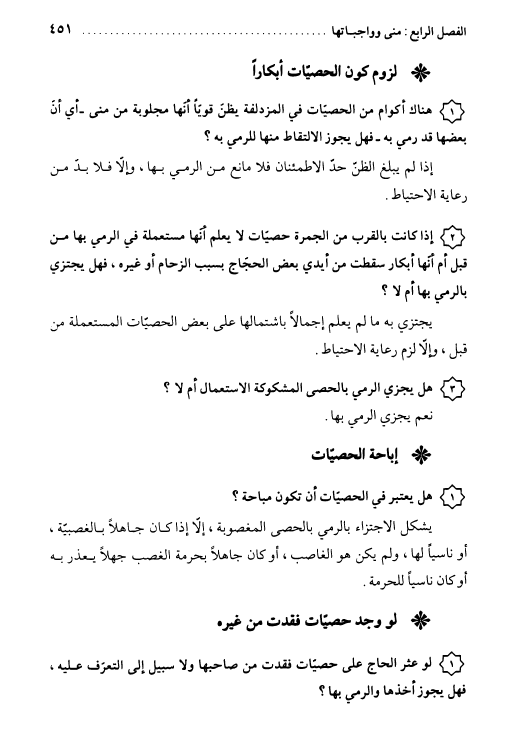 الفصل الرابع: منى وواجباتها ........................................ ٤٥١
❋ لزوم كون الحصيّات أبكاراً
١ هناك أكوام من الحصيّات في المزدلفة يظنّ قويّاً أنّها مجلوبة من منى ـ أي أنّ
بعضها قد رمي به ـ فهل يجوز الالتقاط منها للرمي به ؟
إذا لم يبلغ الظنّ حدّ الاطمئنان فلا مانع من الرمي بها ، وإلّا فلا بدّ من
رعاية الاحتياط .
٢ إذا كانت بالقرب من الجمرة حصيّات لا يعلم أنّها مستعملة في الرمي بها من
قبل أم أنّها أبكار سقطت من أيدي بعض الحجّاج بسبب الزحام أو غيره ، فهل يجتزي
بالرمي بها أم لا ؟
يجتزي به ما لم يعلم إجمالاً باشتمالها على بعض الحصيّات المستعملة من
قبل ، وإلّا لزم رعاية الاحتياط .
٣ هل يجزي الرمي بالحصى المشكوكة الاستعمال أم لا ؟
نعم يجزي الرمي بها .
❋ إباحة الحصيّات
١ هل يعتبر في الحصيّات أن تكون مباحة ؟
يشكل الاجتزاء بالرمي بالحصى المغصوبة ، إلّا إذا كان جاهلاً بالغصبيّة ،
أو ناسياً لها ، ولم يكن هو الغاصب ، أو كان جاهلاً بحرمة الغصب جهلاً يعذر به
أو كان ناسياً للحرمة .
❋ لو وجد حصيّات فقدت من غيره
١ لو عثر الحاج على حصيّات فقدت من صاحبها ولا سبيل إلى التعرّف عليه ،
فهل يجوز أخذها والرمي بها ؟